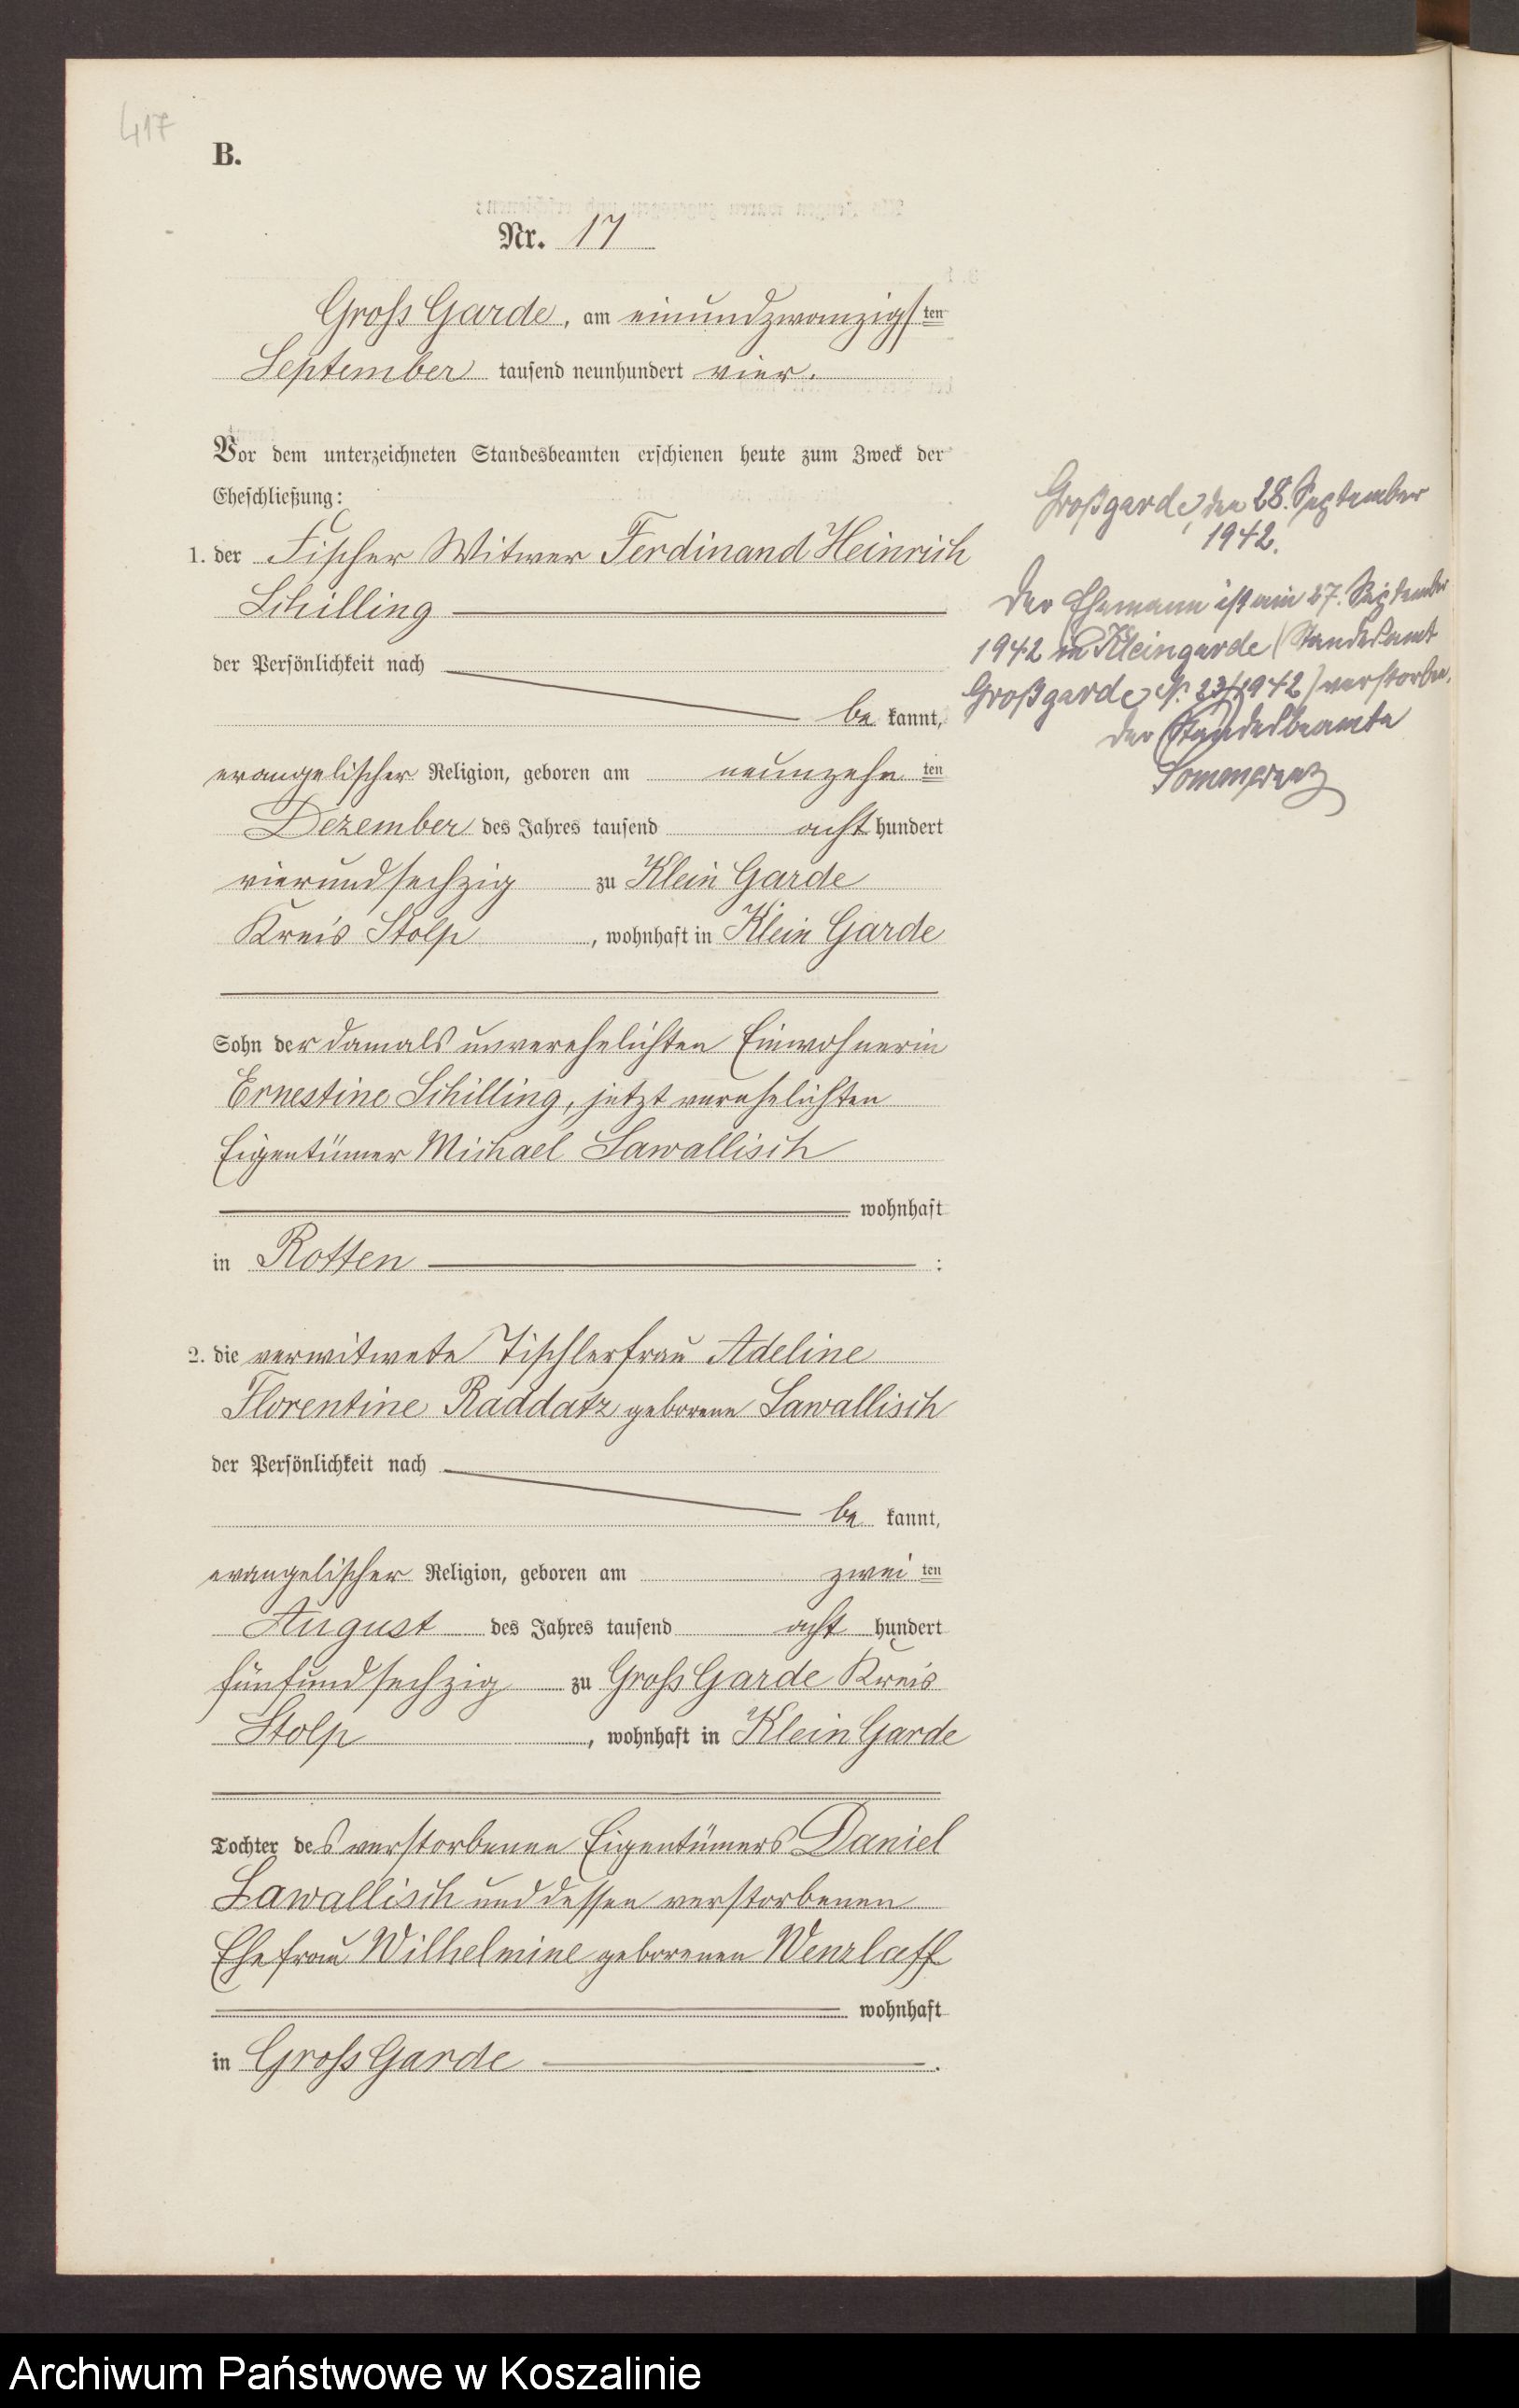 417
B.
Nr. 17
Gross Garde, am einundzwanzigsten
September tausend neunhundert vier.
Vor dem unterzeichneten Standesbeamten erschienen heute zum Zweck der
Eheschließung:
1. der Fischer Witwer Ferdinand Heinrich
Schilling
der Persönlichkeit nach
be kannt,
evangelischer Religion, geboren am neunzehn ten
Dezember des Jahres tausend acht hundert
vierundsechzig zu Klein Garde
Kreis Stolp, wohnhaft in Klein Garde
Sohn der damals unverehelichten Einwohnerin
Ernestine Schilling, jetzt verehelichten
Eigentümer Michael Lawallisch
wohnhaft
in Rotten :
2. die verwitwete Tischlerfrau Adeline
Florentine Raddatz geborene Lawallisch
der Persönlichkeit nach
be kannt,
evangelischer Religion, geboren am zwei ten
August des Jahres tausend acht hundert
fünfundsechzig zu Gross Garde Kreis
Stolp, wohnhaft in Klein Garde
Tochter des verstorbenen Eigentümers Daniel
Lawallisch und dessen verstorbenen
Ehefrau Wilhelmine geborenen Wenzlaff
wohnhaft
in Gross Garde .
Großgarde, den 28. September
1942.
Der Ehemann ist am 27. September
1942 in Kleingarde (Standesamt
Großgarde Nr. 23/1942) verstorben.
Der Standesbeamte
Archiwum Państwowe w Koszalinie